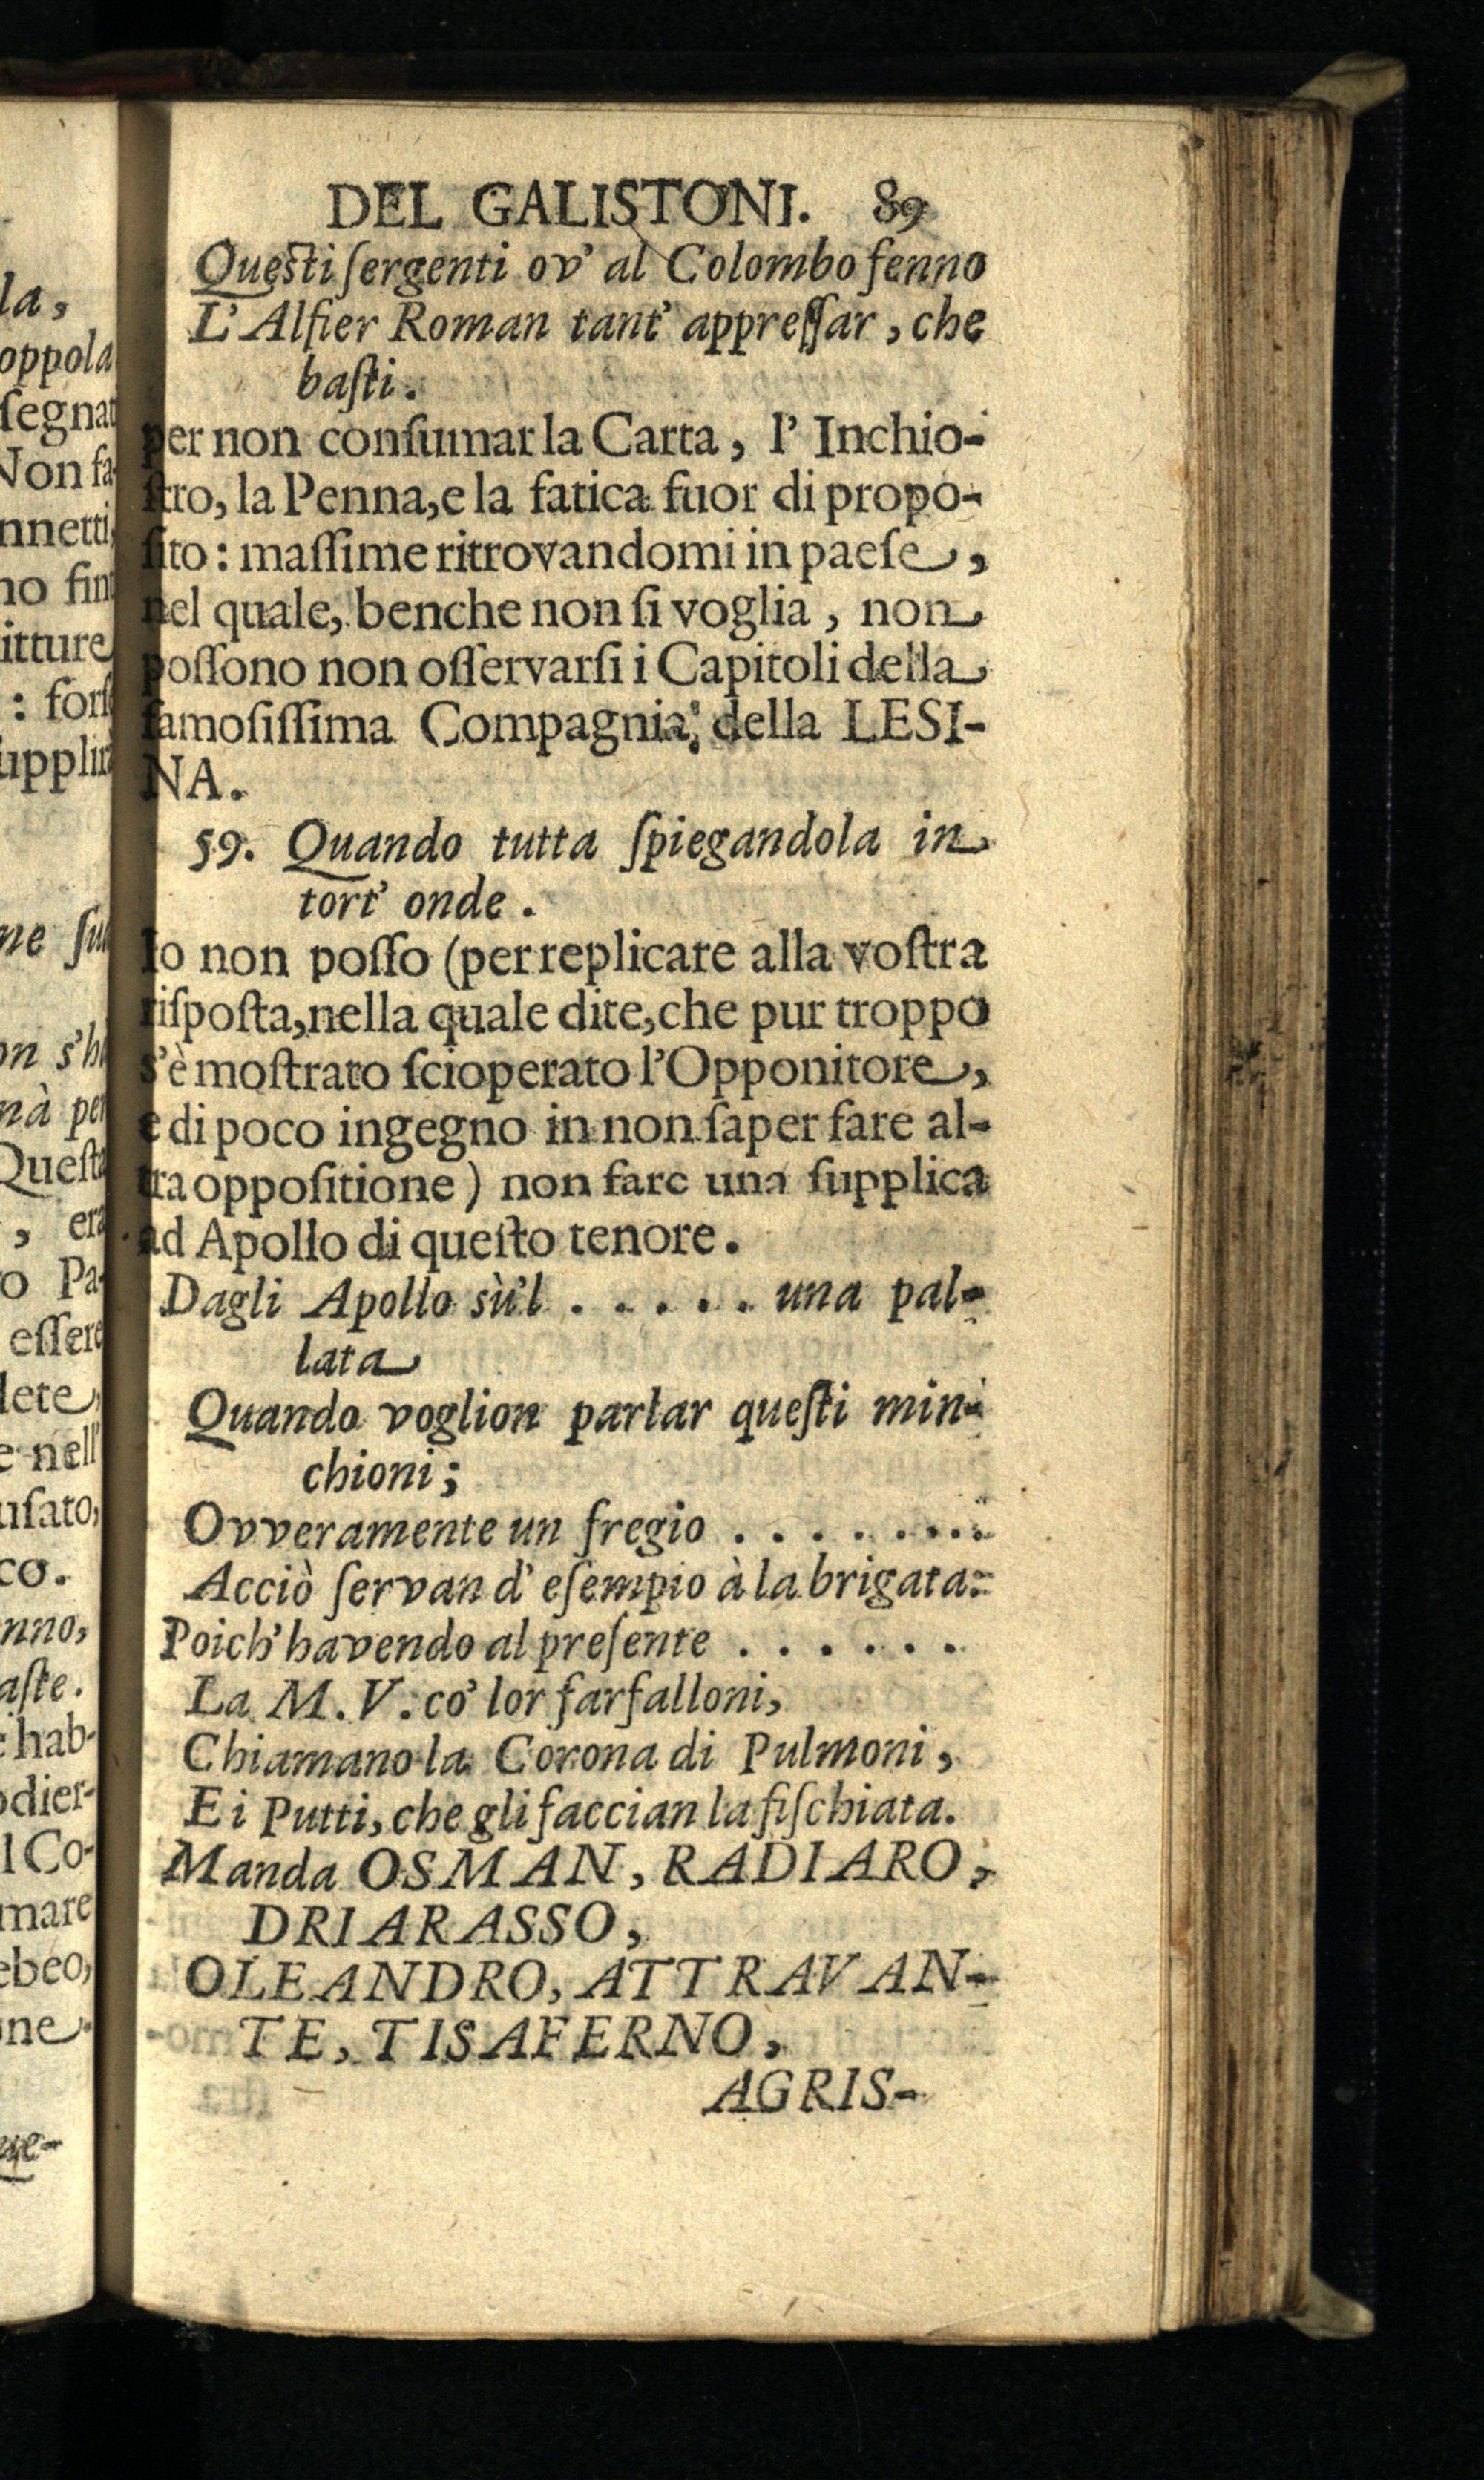 DEL GALISTONI. 89
Questi ſergenti ov' al Colombo fenno
L' Alfier Roman tant' appreſſar, che
baſti.
per non conſumar la Carta, l' Inchio-
ſtro, la Penna, e la fatica fuor di propo-
ſito: maſſime ritrovandomi in paeſe,
nel quale, benche non ſi voglia, non
poſſono non oſſervarſi i Capitoli della
famoſiſſima Compagnia: della LESI-
NA.
59. Quando tutta ſpiegandola in
tort' onde.
Io non poſſo (per replicare alla voſtra
riſpoſta, nella quale dite, che pur troppo
s'è moſtrato ſcioperato l'Opponitore,
e di poco ingegno in non ſaper fare al-
tra oppoſitione) non fare una ſupplica
ad Apollo di queſto tenore.
Dagli Apollo sù'l . . . . . . una pal-
lata
Quando voglion parlar queſti min-
chioni;
Ovveramente un fregio . . . . . . . .
Acciò ſervan d' eſempio à la brigata:
Poich' havendo al preſente . . . . . .
La M. V. co' lor farfalloni,
Chiamano la Corona di Pulmoni,
E i Putti, che gli faccian la fiſchiata.
Manda OSMAN, RADIARO,
DRIARASSO,
OLEANDRO, ATTRAVAN-
TE, TISAFERNO,
AGRIS-
la,
oppola
ſegnat
Non fa-
nnetti,
no fin
itture
: forſ
ſupplir
ne ſu
on s'h
nà per
Queſta
, era
o Pa-
eſſere
dete,
e nell'
uſato,
co.
nno,
aſte.
e hab-
odier-
l Co-
mare
ebeo,
one.
ue-